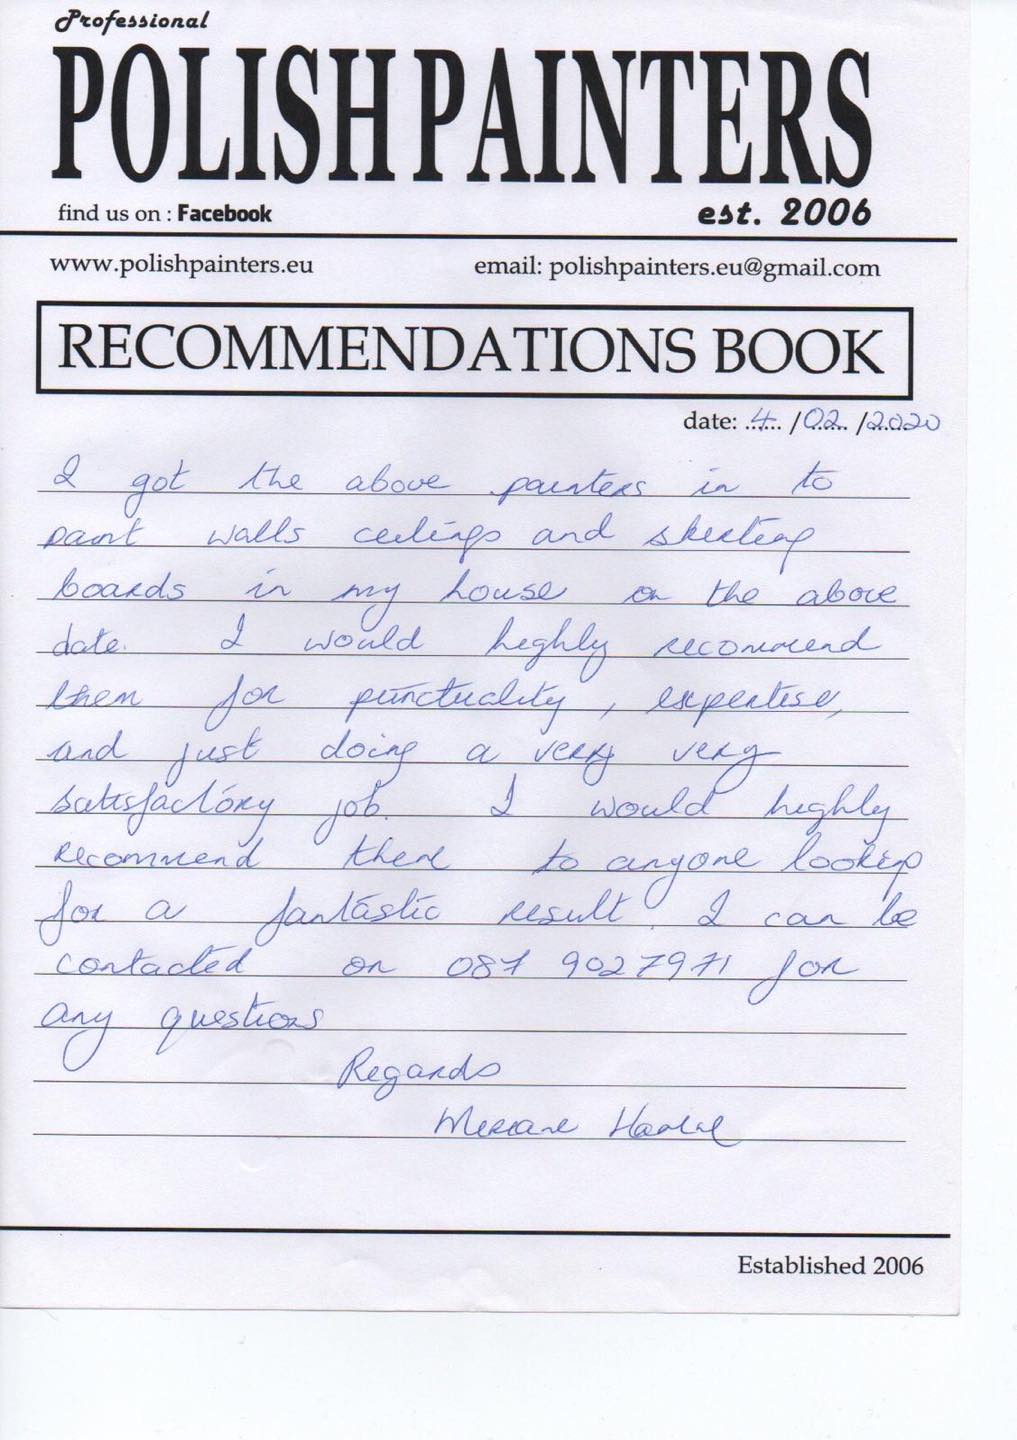 Professional
POLISH PAINTERS
find us on : Facebook
est. 2006
www.polishpainters.eu
email: polishpainters.eu@gmail.com
RECOMMENDATIONS BOOK
date: 4 / 02 / 2020
I got the above painters in to
paint walls ceilings and skirting
boards in my house on the above
date. I would highly recommend
them for punctuality, expertise,
and just doing a very very
satisfactory job. I would highly
recommend them to anyone looking
for a fantastic result. I can be
contacted on 087 9027971 for
any questions
Regards
Established 2006